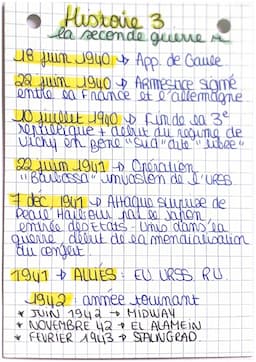 Histoire 3
la seconde guerre
18 juin 1940 → App. de Gaule
22 juin 1940 → Armestice signé
entre la France et l'allemagne
10 juillet 1940 → Fin de la 3e
république + début du régime de
Vichy en zone "sud" dite "libre"
22 juin 1941 → Opération
"Barbarossa" invasion de l'URSS
7 déc 1941 → Attaque surprise de
Pearl Harbour par le Japon
entrée des Etats-Unis dans la
guerre début de la mondialisation
du conflit.
1941 → ALLIÉS : EU. URSS. R.U.
1942 année tournant
* JUIN 1942 → MIDWAY
* NOVEMBRE 42 → EL ALAMEIN
* FEVRIER 1943 → STALINGRAD.